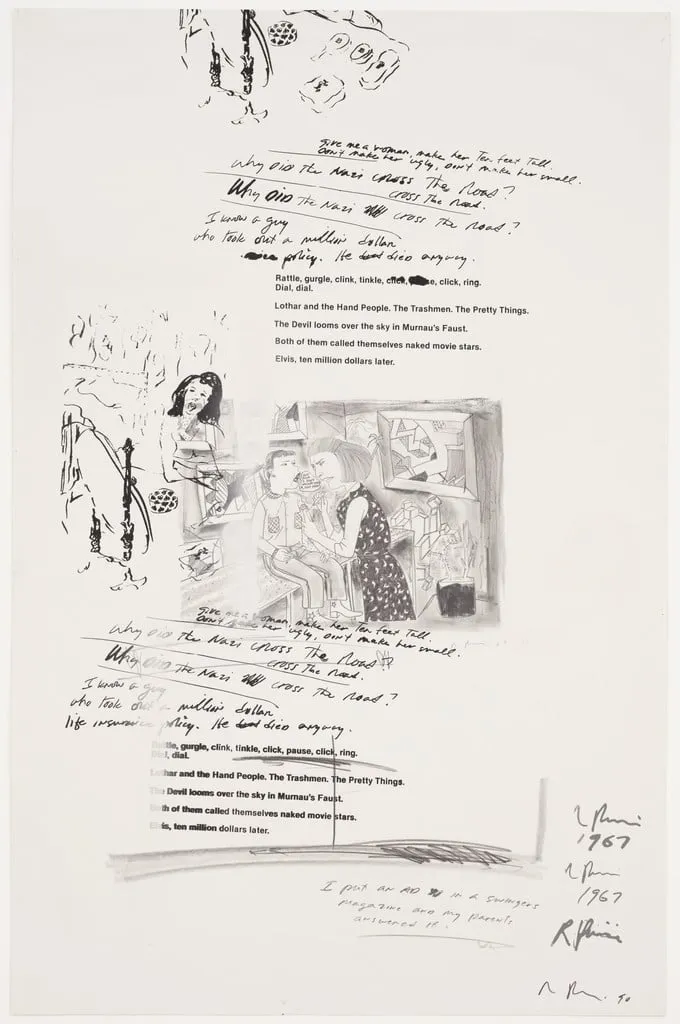 give me a woman, make her Ten feet Tall.
Don't make her ugly, Don't make her small.
Why Did The Nazi cross The Road?
cross The Road.
Why Did The Nazi cross The Road?
I know a guy
who took out a million dollar
policy. He died anyway.
Rattle, gurgle, clink, tinkle, click, click, ring.
Dial, dial.
Lothar and the Hand People. The Trashmen. The Pretty Things.
The Devil looms over the sky in Murnau's Faust.
Both of them called themselves naked movie stars.
Elvis, ten million dollars later.
give me a woman, make her Ten feet Tall.
Don't make her ugly, Don't make her small.
Why Did The Nazi cross The Road?
cross The Road.
Why Did The Nazi cross The Road?
I know a guy
who took out a million dollar
life insurance policy. He died anyway.
Rattle, gurgle, clink, tinkle, click, pause, click, ring.
Dial, dial.
Lothar and the Hand People. The Trashmen. The Pretty Things.
The Devil looms over the sky in Murnau's Faust.
Both of them called themselves naked movie stars.
Elvis, ten million dollars later.
I put an AD in a swingers
magazine and my parents
answered it.
1967
1967
90